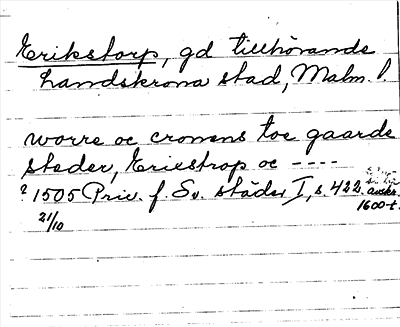 Erikstorp, gd tillhörande
Landskrona stad, Malm. l.
worre oc cronens toe gaarde
steder, Eriestrop oc ----
? 1505 Priv. f. Sv. städer I, s. 422. avskr.
21/10 1600-t.